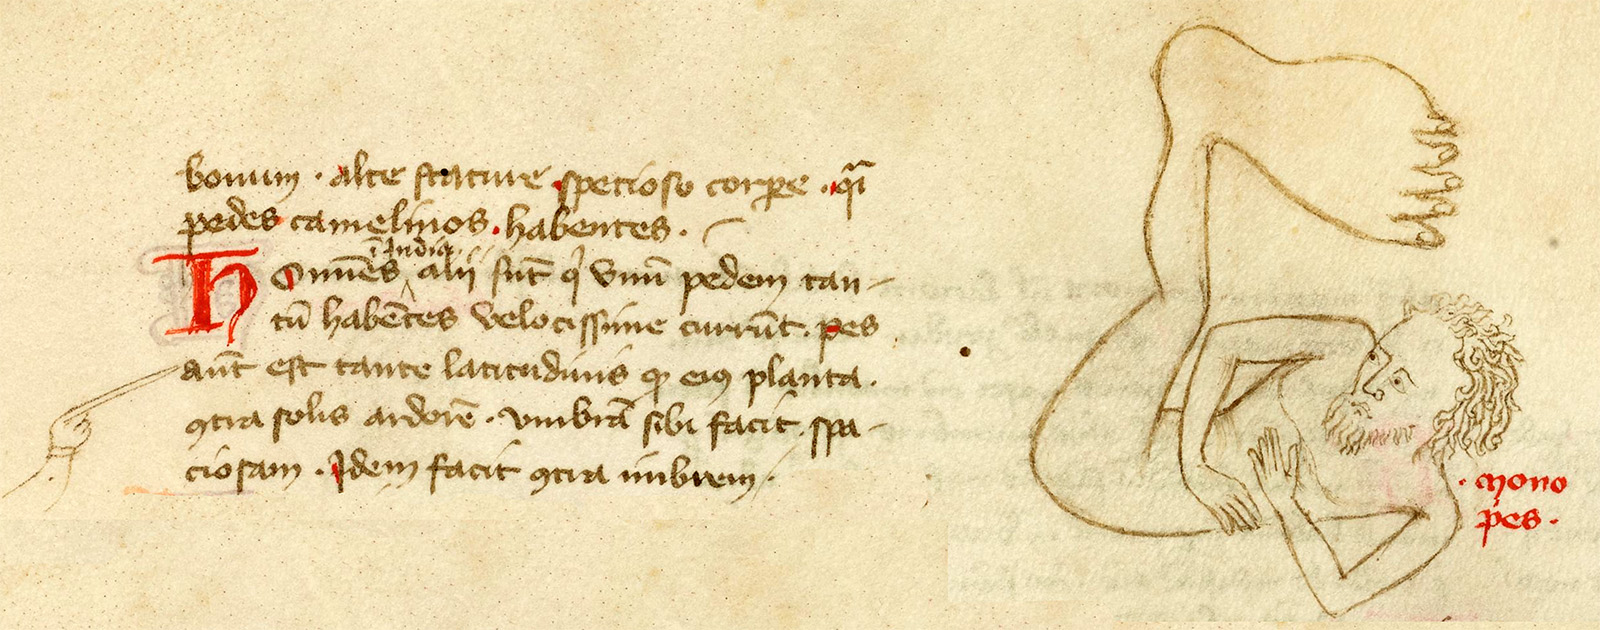 bonum · alte stature · specioso corpore · q̅i
pedes camelinos · habentes ·
i̅ India
Homi̅es alii su̅t q̇ vnu̅ pedem tan-
tu̅ habe̅tes velocissime curru̅t · pes
aut̅ est tante latitudinis q̲ eiꝰ planta ·
ꝯtra solis ardore̅ · vmbra̅ sibi facit · spa-
ciosam · Idem facit ꝯtra imbrem ·
· mono
pes ·